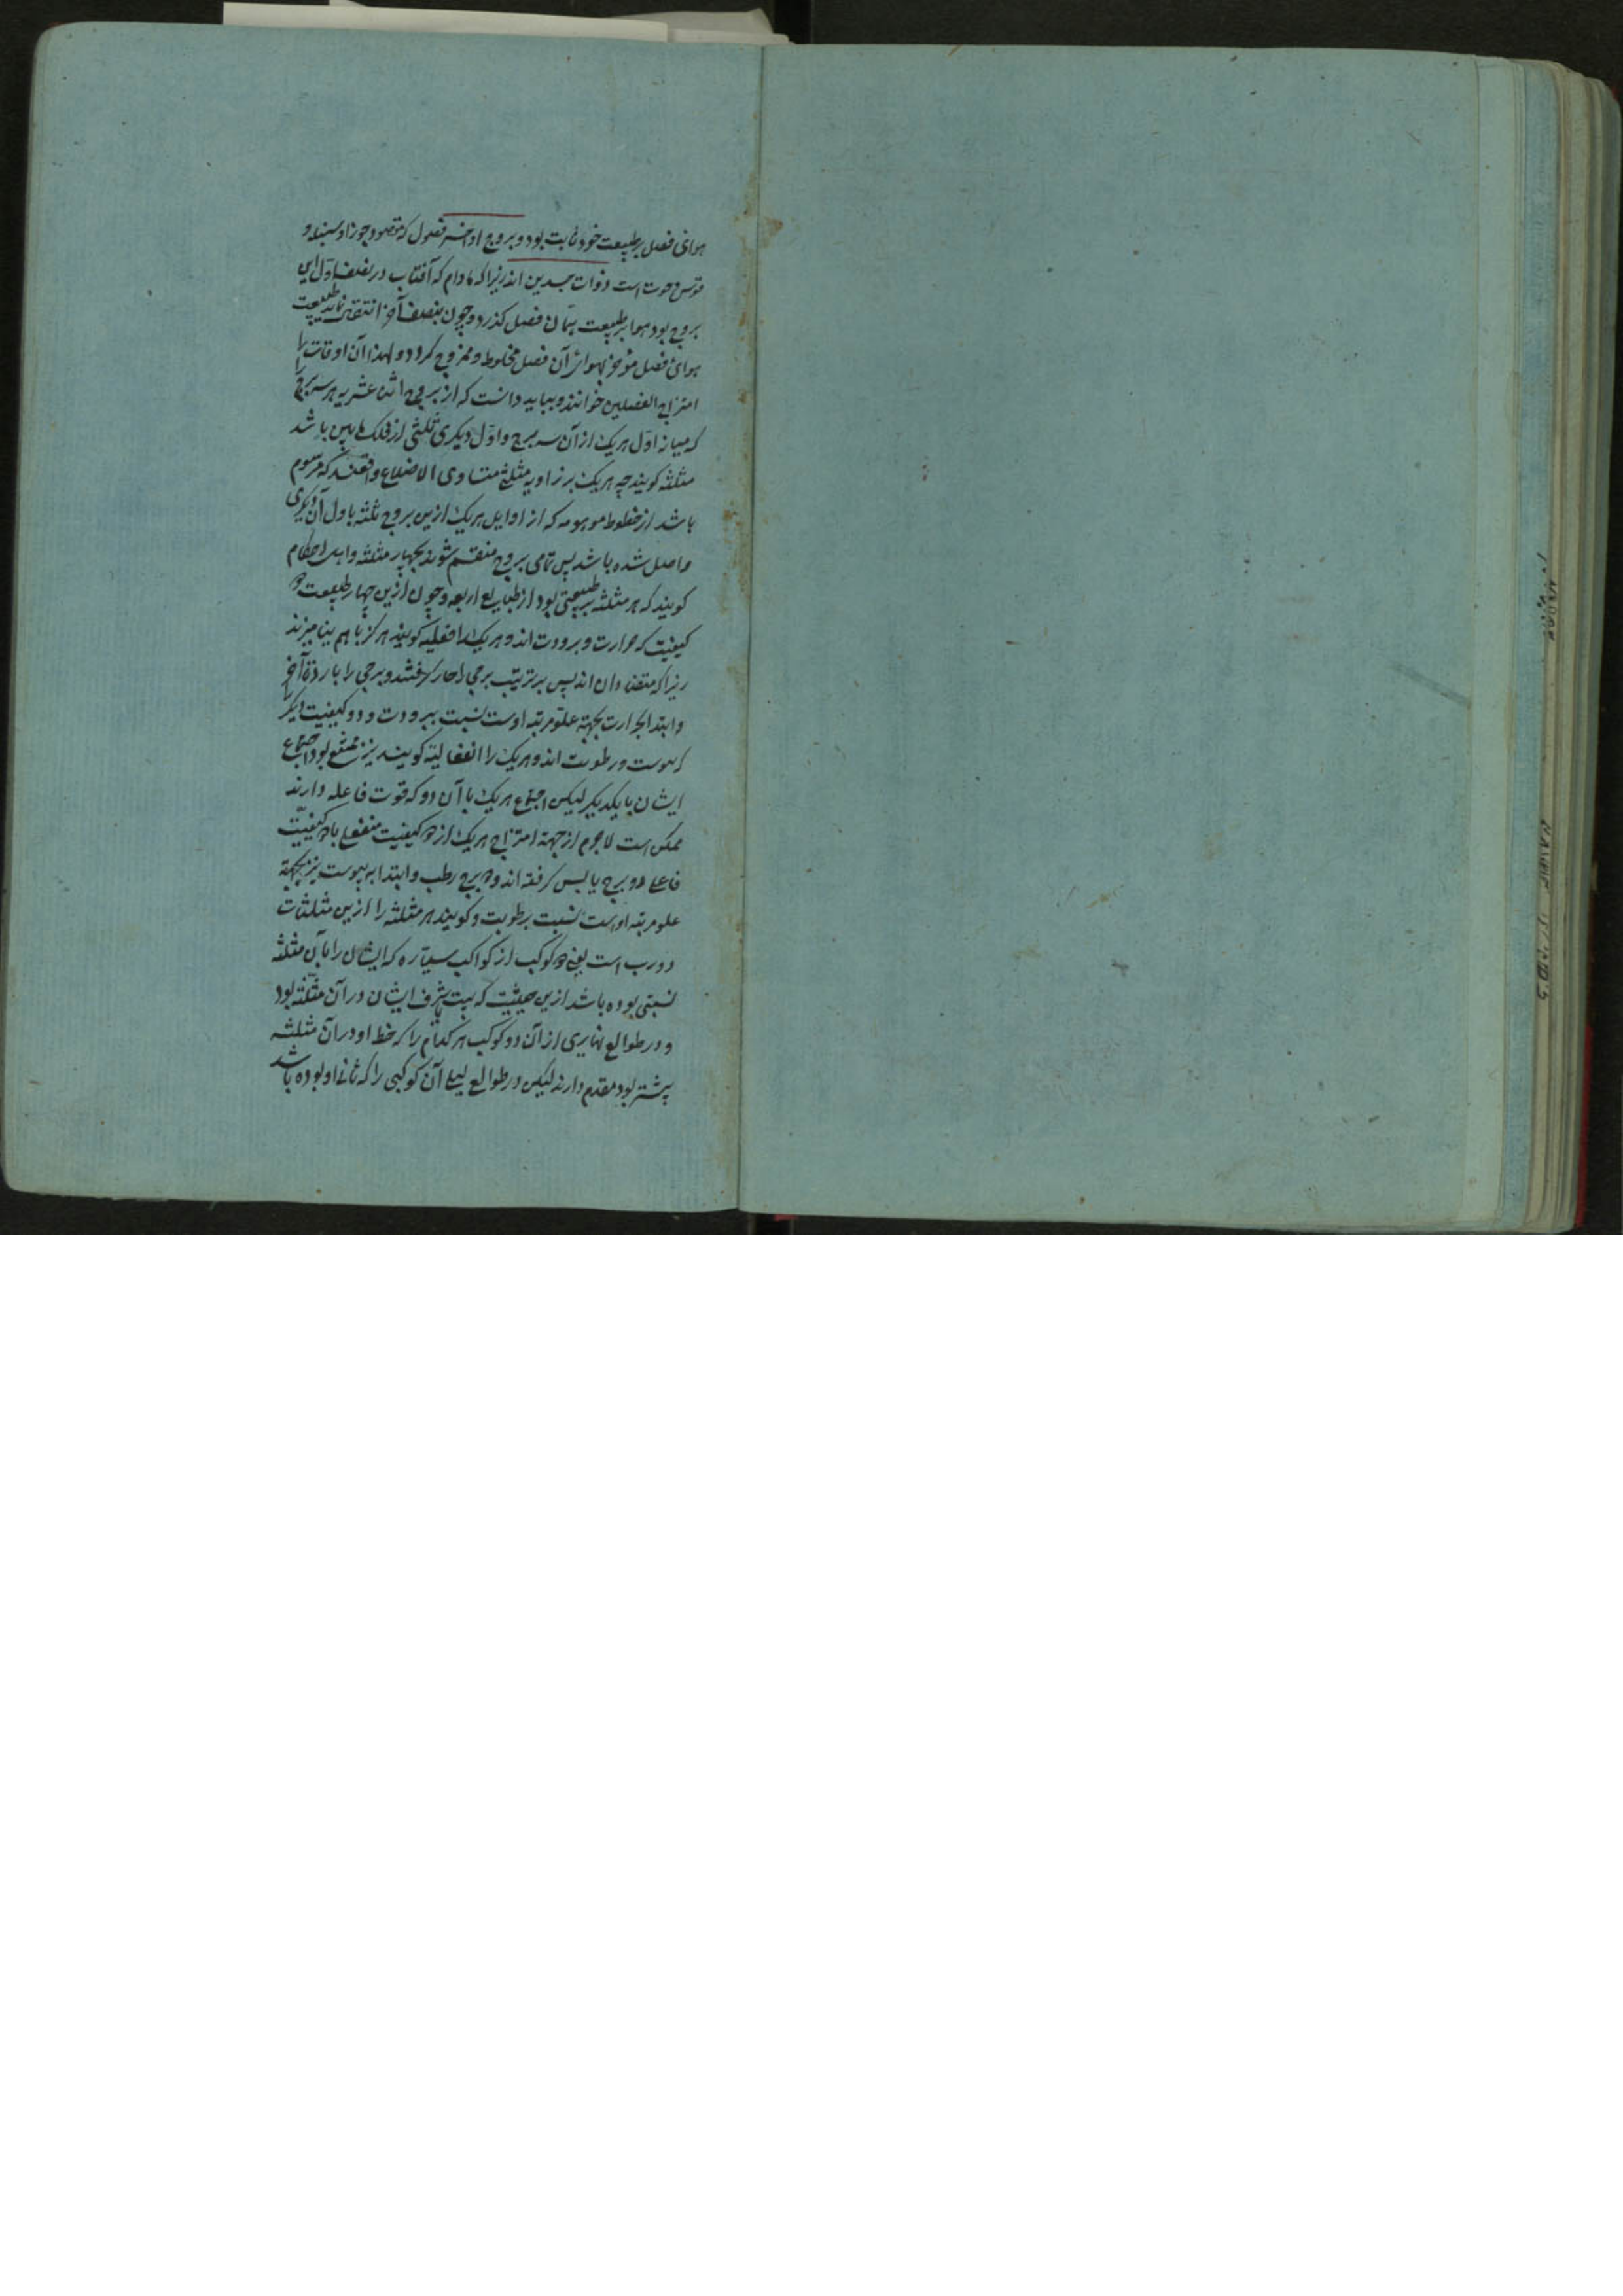 هوای فصل بر طبیعت خود ثابت بود و بروج اواخر فصول که مقصود جوزا و سنبله و
قوس و حوت است ذوات جسدین اند زیرا که مادام که آفتاب در نصف اول این
بروج بود هوا بر طبیعت همان فصل گذرد و چون بنصف آخر انتقال نماید طبیعت
هوای فصل مؤخر بهوای آن فصل مخلوط و ممزوج گردد و لهذا آن اوقات را
امتزاج الفصلین خوانند و بباید دانست که از بروج اثنا عشریه هر سه برج
که میانه اول هر یک از آن سه برج و اول دیگری ثلثی از فلک مابین باشد
مثلثه گویند چه هر یک بر زاویه مثلثی متساوی الاضلاع واقعند که مرسوم
باشد از خطوط موهومه که از اوایل هر یک ازین بروج ثلثه باول آن دیگری
واصل شده باشد پس تمامی بروج منقسم شوند بچهار مثلثه و اهل احکام
گویند که هر مثلثه بر طبیعتی بود از طبایع اربعه و چون ازین چهار طبیعت دو
کیفیت که حرارت و برودت اند و هر یک را فعلیه گویند هرگز با هم نیامیزند
زیرا که متضادان اند پس بر ترتیب برجی را حار گرفتند و برجی را بارد تا آخر
و ابتدا بحرارت بجهة علو مرتبه اوست نسبت ببرودت و دو کیفیت دیگر را
که یبوست و رطوبت اند و هر یک را انفعالیه گویند نیز ممتنع بود اجتماع
ایشان با یکدیگر لیکن اجتماع هر یک با آن دو که قوت فاعله دارند
ممکن است لاجرم از جهة امتزاج هر یک از دو کیفیت منفعل با دو کیفیت
فاعل دو برج یابس گرفته اند و دو برج رطب و ابتدا به یبوست نیز بجهة
علو مرتبه اوست نسبت برطوبت و گویند هر مثلثه را ازین مثلثات
دو رب است یعنی دو کوکب از کواکب سیاره که ایشان را بآن مثلثه
نسبتی بوده باشد ازین حیثیت که بیت یا شرف ایشان در آن مثلثه بود
و در طوالع نهاری از آن دو کوکب هر کدام را که حظ او در آن مثلثه
بیشتر بود مقدم دارند لیکن در طوالع لیلی آن کوکبی را که ثانی او بوده باشد